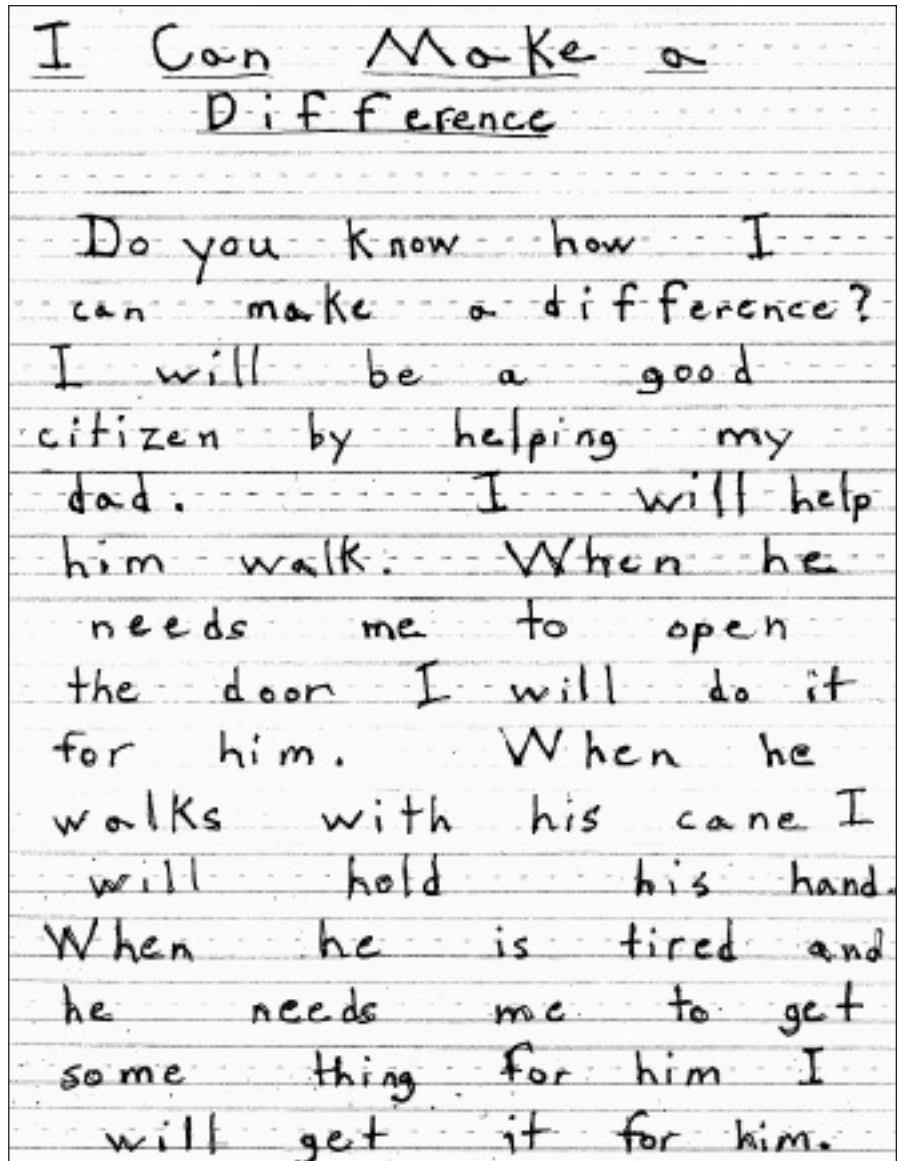 I Can Make a
Difference
Do you know how I
can make a difference?
I will be a good
citizen by helping my
dad. I will help
him walk. When he
needs me to open
the door I will do it
for him. When he
walks with his cane I
will hold his hand.
When he is tired and
he needs me to get
some thing for him I
will get it for him.